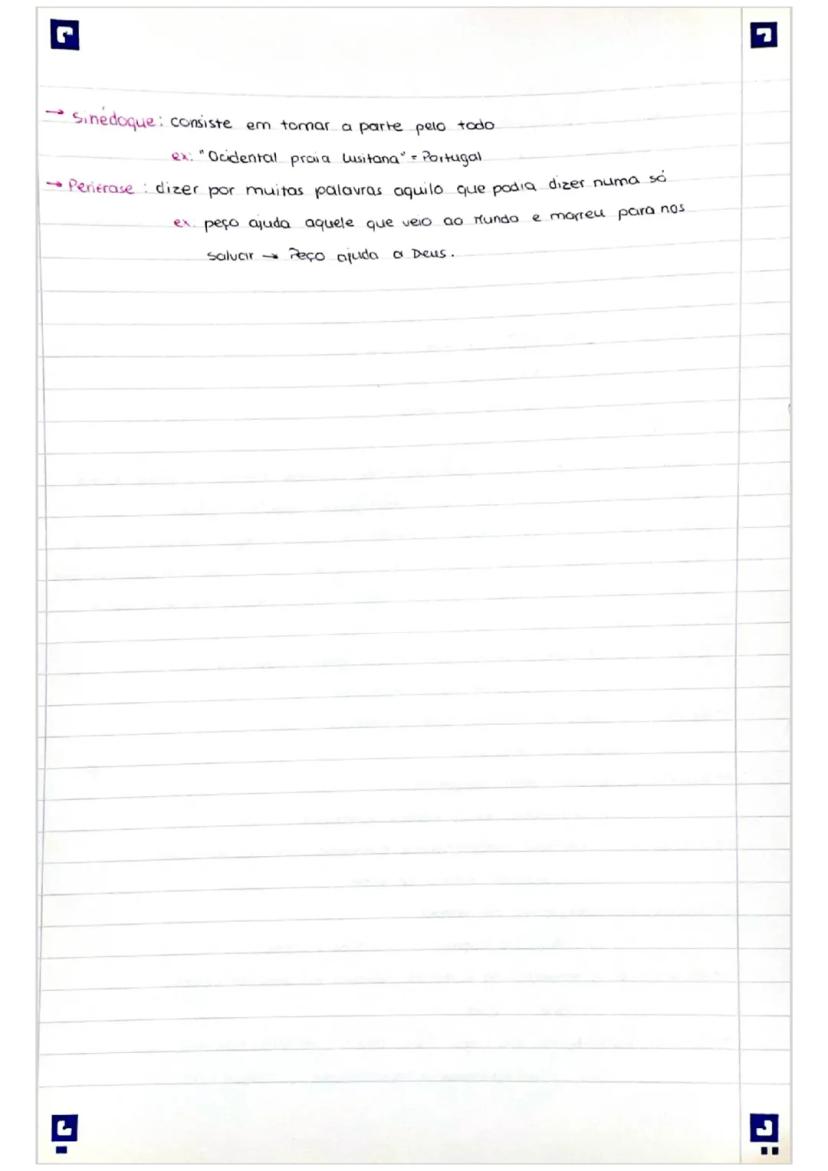 → Sinédoque: consiste em tomar a parte pelo todo
ex: "Ocidental praia lusitana" = Portugal
→ Perífrase: dizer por muitas palavras aquilo que podia dizer numa só
ex. peço ajuda aquele que veio ao Mundo e morreu para nos
salvar → Peço ajuda a Deus.